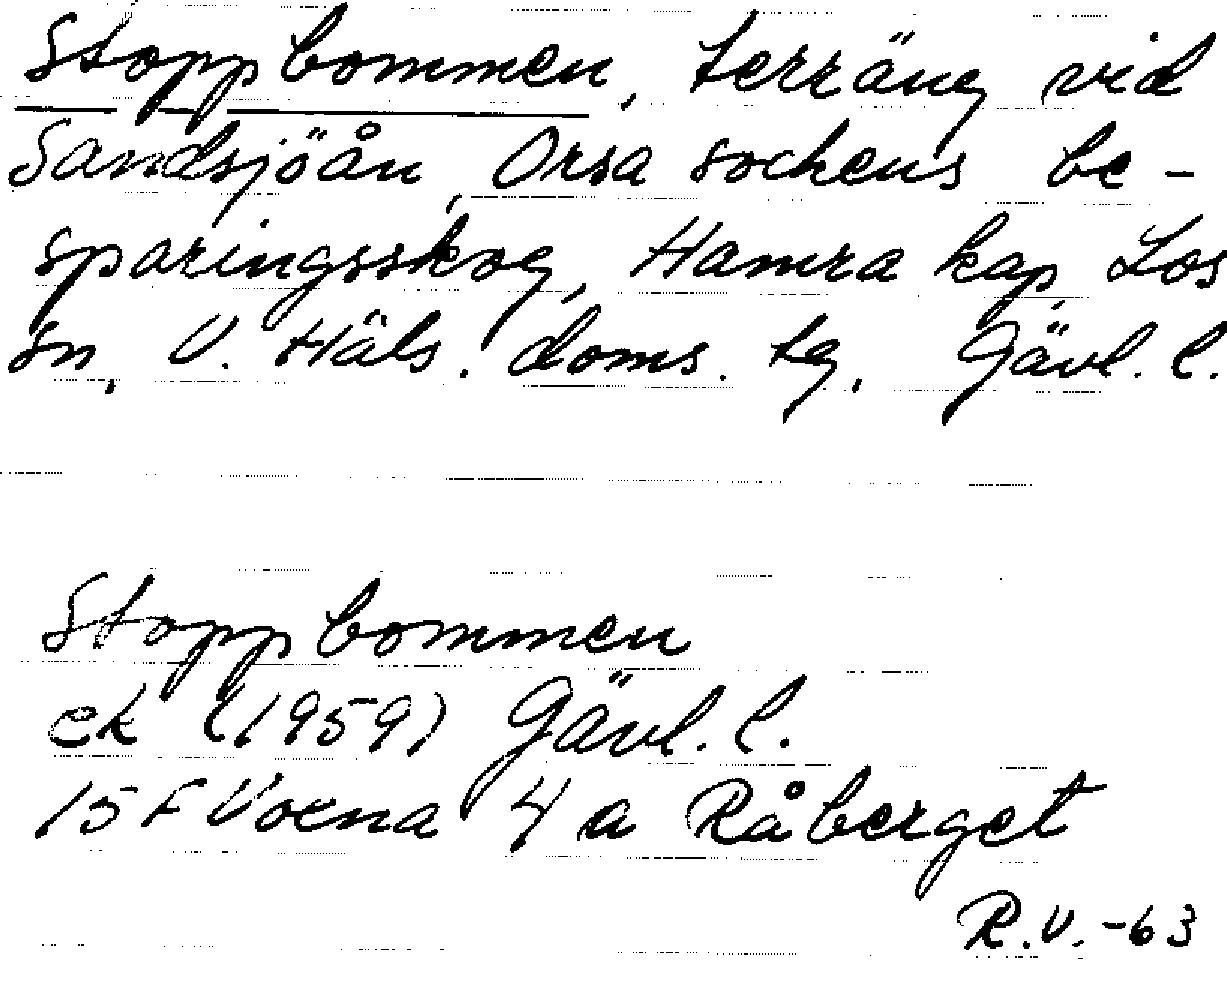 Stoppbommen, terräng vid
Sandsjöån, Orsa sockens be-
sparingsskog, Hamra kap, Los
sn, V. Häls. doms. tg, Gävl. l.
Stoppbommen
ek (1959) Gävl. l.
15 F Voxna 4 a Råberget
R.V. -63